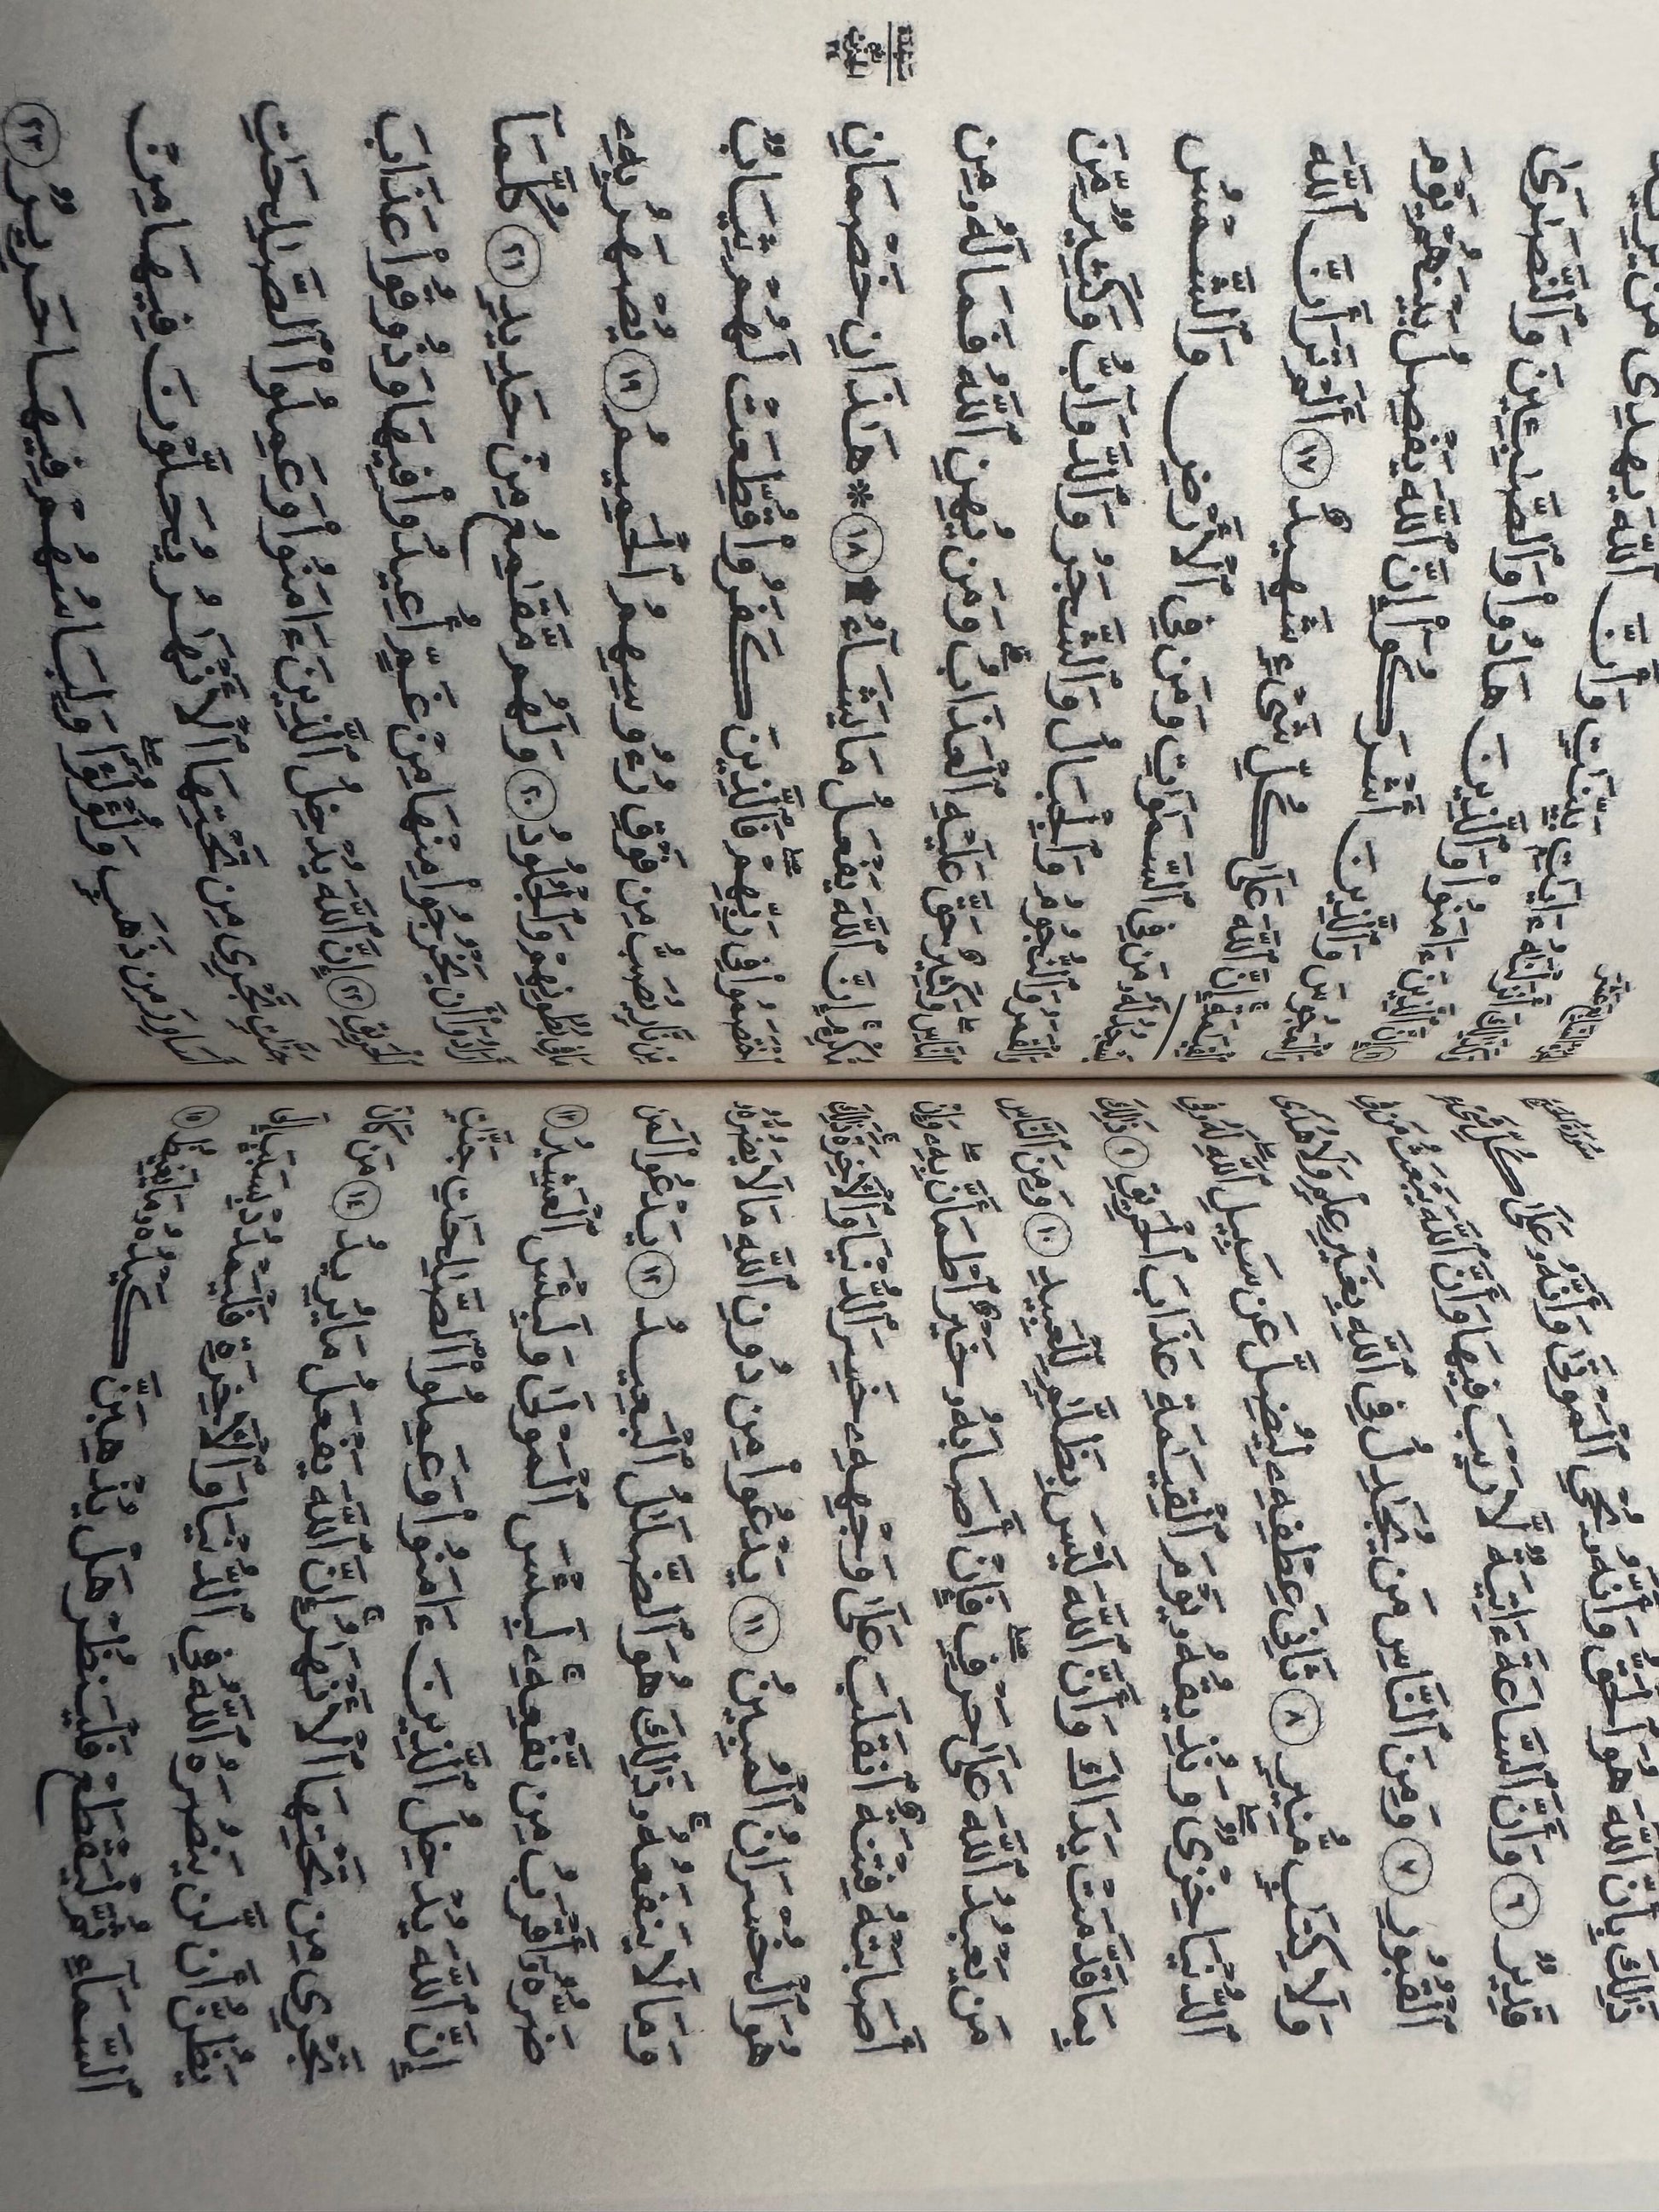 سُورَةُ الحَجّ
ذَٰلِكَ بِأَنَّ ٱللَّهَ هُوَ ٱلْحَقُّ وَأَنَّهُۥ يُحْىِ ٱلْمَوْتَىٰ وَأَنَّهُۥ عَلَىٰ كُلِّ شَىْءٍ
قَدِيرٌ ٦ وَأَنَّ ٱلسَّاعَةَ ءَاتِيَةٌ لَّا رَيْبَ فِيهَا وَأَنَّ ٱللَّهَ يَبْعَثُ مَن فِى
ٱلْقُبُورِ ٧ وَمِنَ ٱلنَّاسِ مَن يُجَـٰدِلُ فِى ٱللَّهِ بِغَيْرِ عِلْمٍ وَلَا هُدًى
وَلَا كِتَـٰبٍ مُّنِيرٍ ٨ ثَانِىَ عِطْفِهِۦ لِيُضِلَّ عَن سَبِيلِ ٱللَّهِ ۖ لَهُۥ فِى
ٱلدُّنْيَا خِزْىٌ ۖ وَنُذِيقُهُۥ يَوْمَ ٱلْقِيَـٰمَةِ عَذَابَ ٱلْحَرِيقِ ٩ ذَٰلِكَ
بِمَا قَدَّمَتْ يَدَاكَ وَأَنَّ ٱللَّهَ لَيْسَ بِظَلَّـٰمٍ لِّلْعَبِيدِ ١٠ وَمِنَ ٱلنَّاسِ
مَن يَعْبُدُ ٱللَّهَ عَلَىٰ حَرْفٍ ۖ فَإِنْ أَصَابَهُۥ خَيْرٌ ٱطْمَأَنَّ بِهِۦ ۖ وَإِنْ
أَصَابَتْهُ فِتْنَةٌ ٱنقَلَبَ عَلَىٰ وَجْهِهِۦ خَسِرَ ٱلدُّنْيَا وَٱلْأَخِرَةَ ۚ ذَٰلِكَ
هُوَ ٱلْخُسْرَانُ ٱلْمُبِينُ ١١ يَدْعُوا۟ مِن دُونِ ٱللَّهِ مَا لَا يَضُرُّهُۥ
وَمَا لَا يَنفَعُهُۥ ۚ ذَٰلِكَ هُوَ ٱلضَّلَـٰلُ ٱلْبَعِيدُ ١٢ يَدْعُوا۟ لَمَن
ضَرُّهُۥٓ أَقْرَبُ مِن نَّفْعِهِۦ ۚ لَبِئْسَ ٱلْمَوْلَىٰ وَلَبِئْسَ ٱلْعَشِيرُ ١٣
إِنَّ ٱللَّهَ يُدْخِلُ ٱلَّذِينَ ءَامَنُوا۟ وَعَمِلُوا۟ ٱلصَّـٰلِحَـٰتِ جَنَّـٰتٍ
تَجْرِى مِن تَحْتِهَا ٱلْأَنْهَـٰرُ ۚ إِنَّ ٱللَّهَ يَفْعَلُ مَا يُرِيدُ ١٤ مَن كَانَ
يَظُنُّ أَن لَّن يَنصُرَهُ ٱللَّهُ فِى ٱلدُّنْيَا وَٱلْأَخِرَةِ فَلْيَمْدُدْ بِسَبَبٍ إِلَى
ٱلسَّمَآءِ ثُمَّ لْيَقْطَعْ فَلْيَنظُرْ هَلْ يُذْهِبَنَّ كَيْدُهُۥ مَا يَغِيظُ ١٥
وَكَذَٰلِكَ أَنزَلْنَـٰهُ ءَايَـٰتٍ بَيِّنَـٰتٍ وَأَنَّ ٱللَّهَ يَهْدِى مَن يُرِيدُ
١٦ إِنَّ ٱلَّذِينَ ءَامَنُوا۟ وَٱلَّذِينَ هَادُوا۟ وَٱلصَّـٰبِـِٔينَ وَٱلنَّصَـٰرَىٰ
وَٱلْمَجُوسَ وَٱلَّذِينَ أَشْرَكُوٓا۟ إِنَّ ٱللَّهَ يَفْصِلُ بَيْنَهُمْ يَوْمَ
ٱلْقِيَـٰمَةِ ۚ إِنَّ ٱللَّهَ عَلَىٰ كُلِّ شَىْءٍ شَهِيدٌ ١٧ أَلَمْ تَرَ أَنَّ ٱللَّهَ
يَسْجُدُ لَهُۥ مَن فِى ٱلسَّمَـٰوَٰتِ وَمَن فِى ٱلْأَرْضِ وَٱلشَّمْسُ
وَٱلْقَمَرُ وَٱلنُّجُومُ وَٱلْجِبَالُ وَٱلشَّجَرُ وَٱلدَّوَآبُّ وَكَثِيرٌ مِّنَ
ٱلنَّاسِ ۖ وَكَثِيرٌ حَقَّ عَلَيْهِ ٱلْعَذَابُ ۗ وَمَن يُهِنِ ٱللَّهُ فَمَا لَهُۥ مِن
مُّكْرِمٍ ۚ إِنَّ ٱللَّهَ يَفْعَلُ مَا يَشَآءُ ۩ ١٨ ۞ هَـٰذَانِ خَصْمَانِ
ٱخْتَصَمُوا۟ فِى رَبِّهِمْ ۖ فَٱلَّذِينَ كَفَرُوا۟ قُطِّعَتْ لَهُمْ ثِيَابٌ
مِّن نَّارٍ يُصَبُّ مِن فَوْقِ رُءُوسِهِمُ ٱلْحَمِيمُ ١٩ يُصْهَرُ بِهِۦ
مَا فِى بُطُونِهِمْ وَٱلْجُلُودُ ٢٠ وَلَهُم مَّقَـٰمِعُ مِنْ حَدِيدٍ ٢١ كُلَّمَآ
أَرَادُوٓا۟ أَن يَخْرُجُوا۟ مِنْهَا مِنْ غَمٍّ أُعِيدُوا۟ فِيهَا وَذُوقُوا۟ عَذَابَ
ٱلْحَرِيقِ ٢٢ إِنَّ ٱللَّهَ يُدْخِلُ ٱلَّذِينَ ءَامَنُوا۟ وَعَمِلُوا۟ ٱلصَّـٰلِحَـٰتِ
جَنَّـٰتٍ تَجْرِى مِن تَحْتِهَا ٱلْأَنْهَـٰرُ يُحَلَّوْنَ فِيهَا مِنْ
أَسَاوِرَ مِن ذَهَبٍ وَلُؤْلُؤًا ۖ وَلِبَاسُهُمْ فِيهَا حَرِيرٌ ٢٣
سَجْدَة